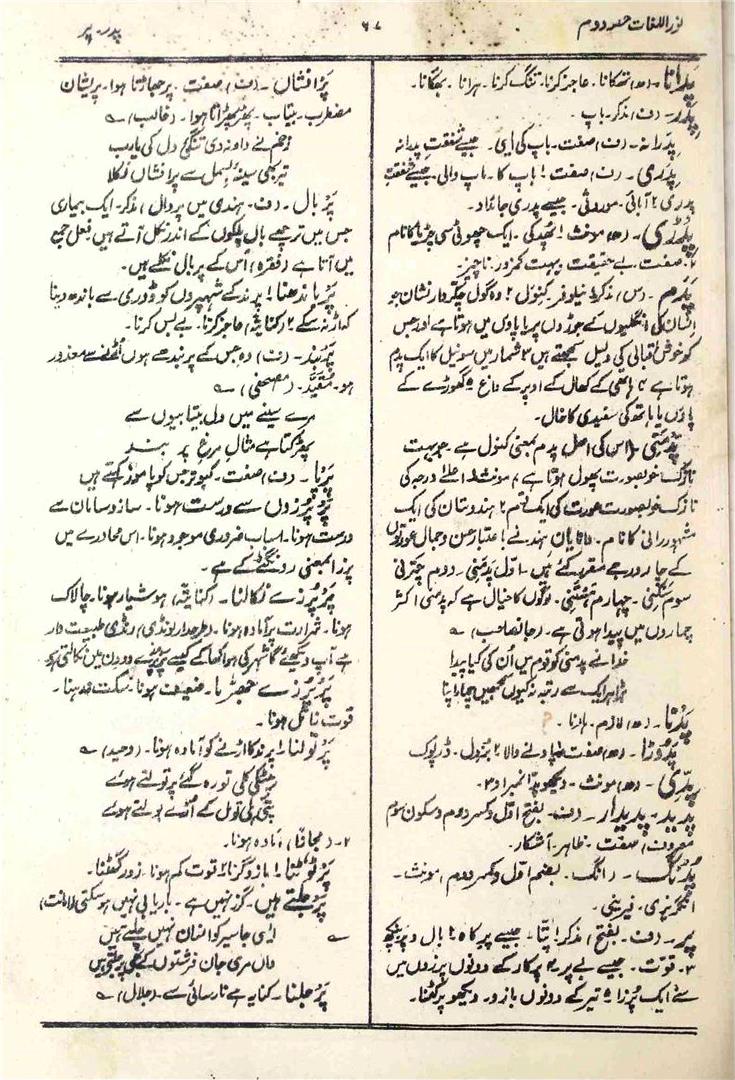 نور اللغات حصہ دوم
۶۷
پدر۔ پر
پدانا۔ (ھ) تھکانا۔ عاجز کرنا۔ تنگ کرنا۔ ہرانا۔ بھگانا۔
پدر۔ (ف) مذکر۔ باپ۔
پدرانہ۔ (ف) صفت۔ باپ کی ایسی۔ جیسے شفقتِ پدرانہ
پدری۔ (ف) صفت ۱ باپ کا۔ باپ والی۔ جیسے شفقتِ
پدری ۲ آبائی۔ موروثی۔ جیسے پدری جائداد۔
(ھ) مونث ۱ پھدکی۔ ایک چھوٹی سی چڑیا کا نام
۲ صفت۔ بے حقیقت۔ بہت کمزور۔ ناچیز۔
پدم۔ (س) مذکر ۱ نیلوفر۔ کنول ۲ وہ گول چکّر دار نشان جو
انسان کی انگلیوں کے جوڑوں پر یا پاؤں میں ہوتا ہے اور جس
کو خوش اقبالی کی دلیل سمجھتے ہیں ۳ شمار میں سو نیل کا ایک پدم
ہوتا ہے ۴ ہاتھی کے کھال کے اوپر کے داغ ۵ گھوڑے کے
پاؤں یا ہاتھ کی سفیدی کا خال۔
پدمنی۔ (اس کی اصل پدم بمعنی کنول ہے۔ جو بہت
نازک خوبصورت پھول ہوتا ہے) مونث ۱ اعلےٰ درجہ کی
نازک خوبصورت عورت کی ایک قسم ۲ ہندوستان کی ایک
مشہور رانی کا نام۔ دانایانِ ہند نے باعتبار حسن و جمال عورتوں
کے چار درجے مقرر کئے ہیں۔ اول پدمنی۔ دوم چترنی
سوم سنکھنی۔ چہارم ہستنی۔ لوگوں کا خیال ہے کہ پدمنی اکثر
چماروں میں پیدا ہوتی ہے۔ (جانصاحب) ؎
خدا نے پدمنی کو قوم میں اُن کی کیا پیدا
بڑا ہر ایک سے رتبہ نہ کیوں سمجھیں چمار اپنا
پدنا۔ (ھ) لازم۔ ہارنا۔
پدوڑا۔ (ھ) صفت ۱ پادنے والا ۲ بزدل۔ ڈرپوک
پدّی۔ (ھ) مونث۔ دیکھو پدّا نمبر ۱ و ۳۔
پدید۔ پدیدار۔ (ف۔ بفتح اول و کسر دوم و سکون سوم
معروف) صفت۔ ظاہر۔ آشکار۔
پڈنگ۔ (انگ۔ بضم اول و کسر دوم) مونث۔
انگریزی۔ فیرینی۔
پر۔ (ف۔ بفتح) مذکر ۱ پتّا۔ جیسے پر کاہ ۲ بال و پر پنکھ
۳۔ قوّت۔ جیسے بے پر ۴ پرکار کے دونوں پرزوں میں
سے ایک پرزا ۵ تیر کے دونوں بازو۔ دیکھو پر کٹنا۔
پر افشاں۔ (ف) صفت۔ پر جھاڑتا ہوا۔ پریشان
مضطرب۔ بیتاب۔ پھڑپھڑاتا ہوا۔ (غالب) ؎
زخم نے داد نہ دی تنگیٔ دل کی یارب
تیر بھی سینۂ بسمل سے پر افشاں نکلا
پر بال۔ (ف۔ ہندی میں پروال) مذکر۔ ایک بیماری
جس میں ترچھے بال پلکوں کے اندر نکل آتے ہیں۔ فعل جمع
میں آتا ہے (فقرہ) اُس کے پر بال نکلے ہیں۔
پر باندھنا ۱ پرند کے شہپروں کو ڈوری سے باندھ دینا
کہ اڑ نہ سکے ۲ (کنایتہً) عاجز کرنا۔ بے بس کرنا۔
پر بند۔ (ف) وہ جس کے پر بندھے ہوں اُڑنے سے معذور
ہو۔ مُقیّد۔ (مصحفی) ؎
مرے سینے میں دل بیتابیوں سے
پھڑکتا ہے مثالِ مرغِ پر بند
پر پا۔ (ف) صفت۔ کبوتر جس کو پاموز کہتے ہیں
پر پرزوں سے درست ہونا۔ ساز و سامان سے
درست ہونا۔ اسباب ضروری موجود ہونا۔ اس محاورے میں
پرزا بمعنی رونگٹے کے ہے۔
پر پرزے نکالنا۔ (کنایتہً) ہوشیار ہونا۔ چالاک
ہونا۔ شرارت پر آمادہ ہونا۔ (طرحدار لونڈی) رنڈی طبیعت دار
ہے آپ دیکھئے گا شہر کی ہوا کھا کے کیسے پر پرزے دو دن میں نکالتی ہے
پر پرزے جھڑنا۔ ضعیف ہونا۔ سکت نہ رہنا۔
قوت زائل ہونا۔
پر تولنا ۱ پرند کا اڑنے کو آمادہ ہونا۔ (وحید) ؎
چٹکی کلی تو رہ گئے پر تولتے ہوئے
پتی ہلی تو بول کے اڑے بولتے ہوئے
۲۔ (مجازاً) آمادہ ہونا۔
پر ٹوٹنا ۱ بازو گرنا ۲ قوت کم ہونا۔ زور گھٹنا۔
پر جلتے ہیں۔ گزر نہیں ہے۔ باریابی نہیں ہو سکتی (امانت)
؎ ایسی جا سیر کو انسان نہیں چلتے ہیں
واں مری جان فرشتوں کے بھی پر جلتے ہیں
پر جلنا۔ کنایہ ہے نارسائی سے۔ (جلال) ؎